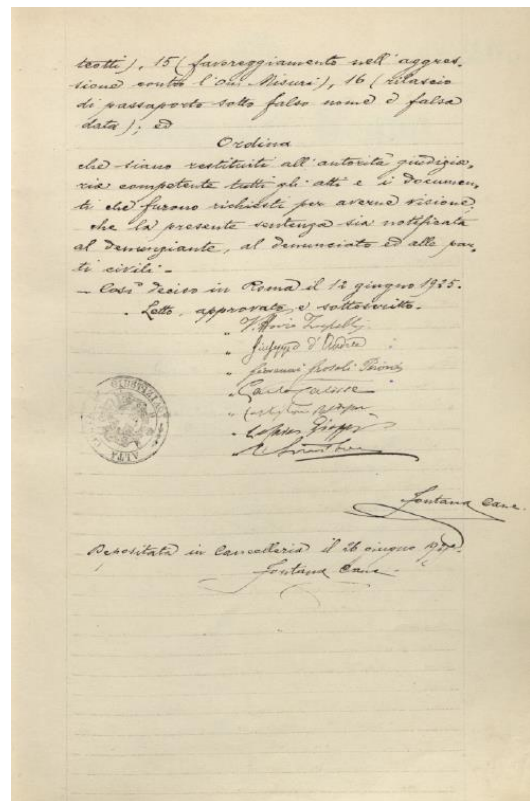 teotti), 15 (favoreggiamento nell'aggres-
sione contro l'On. Misuri), 16 (rilascio
di passaporto sotto falso nome e falsa
data); ed
Ordina
che siano restituiti all'autorità giudizia-
ria competente tutti gli atti e i documen-
ti che furono richiesti per averne visione;
che la presente sentenza sia notificata
al denunziante, al denunciato ed alle par-
ti civili -
- Così deciso in Roma il 12 giugno 1925.
- Letto, approvato e sottoscritto.
" Vittorio Zupelli
" Giuseppe d'Andrea
" Giovanni
" Carlo Calisse
ALTA
Fontana Canc.
Depositata in Cancelleria il 26 giugno
Fontana Canc.